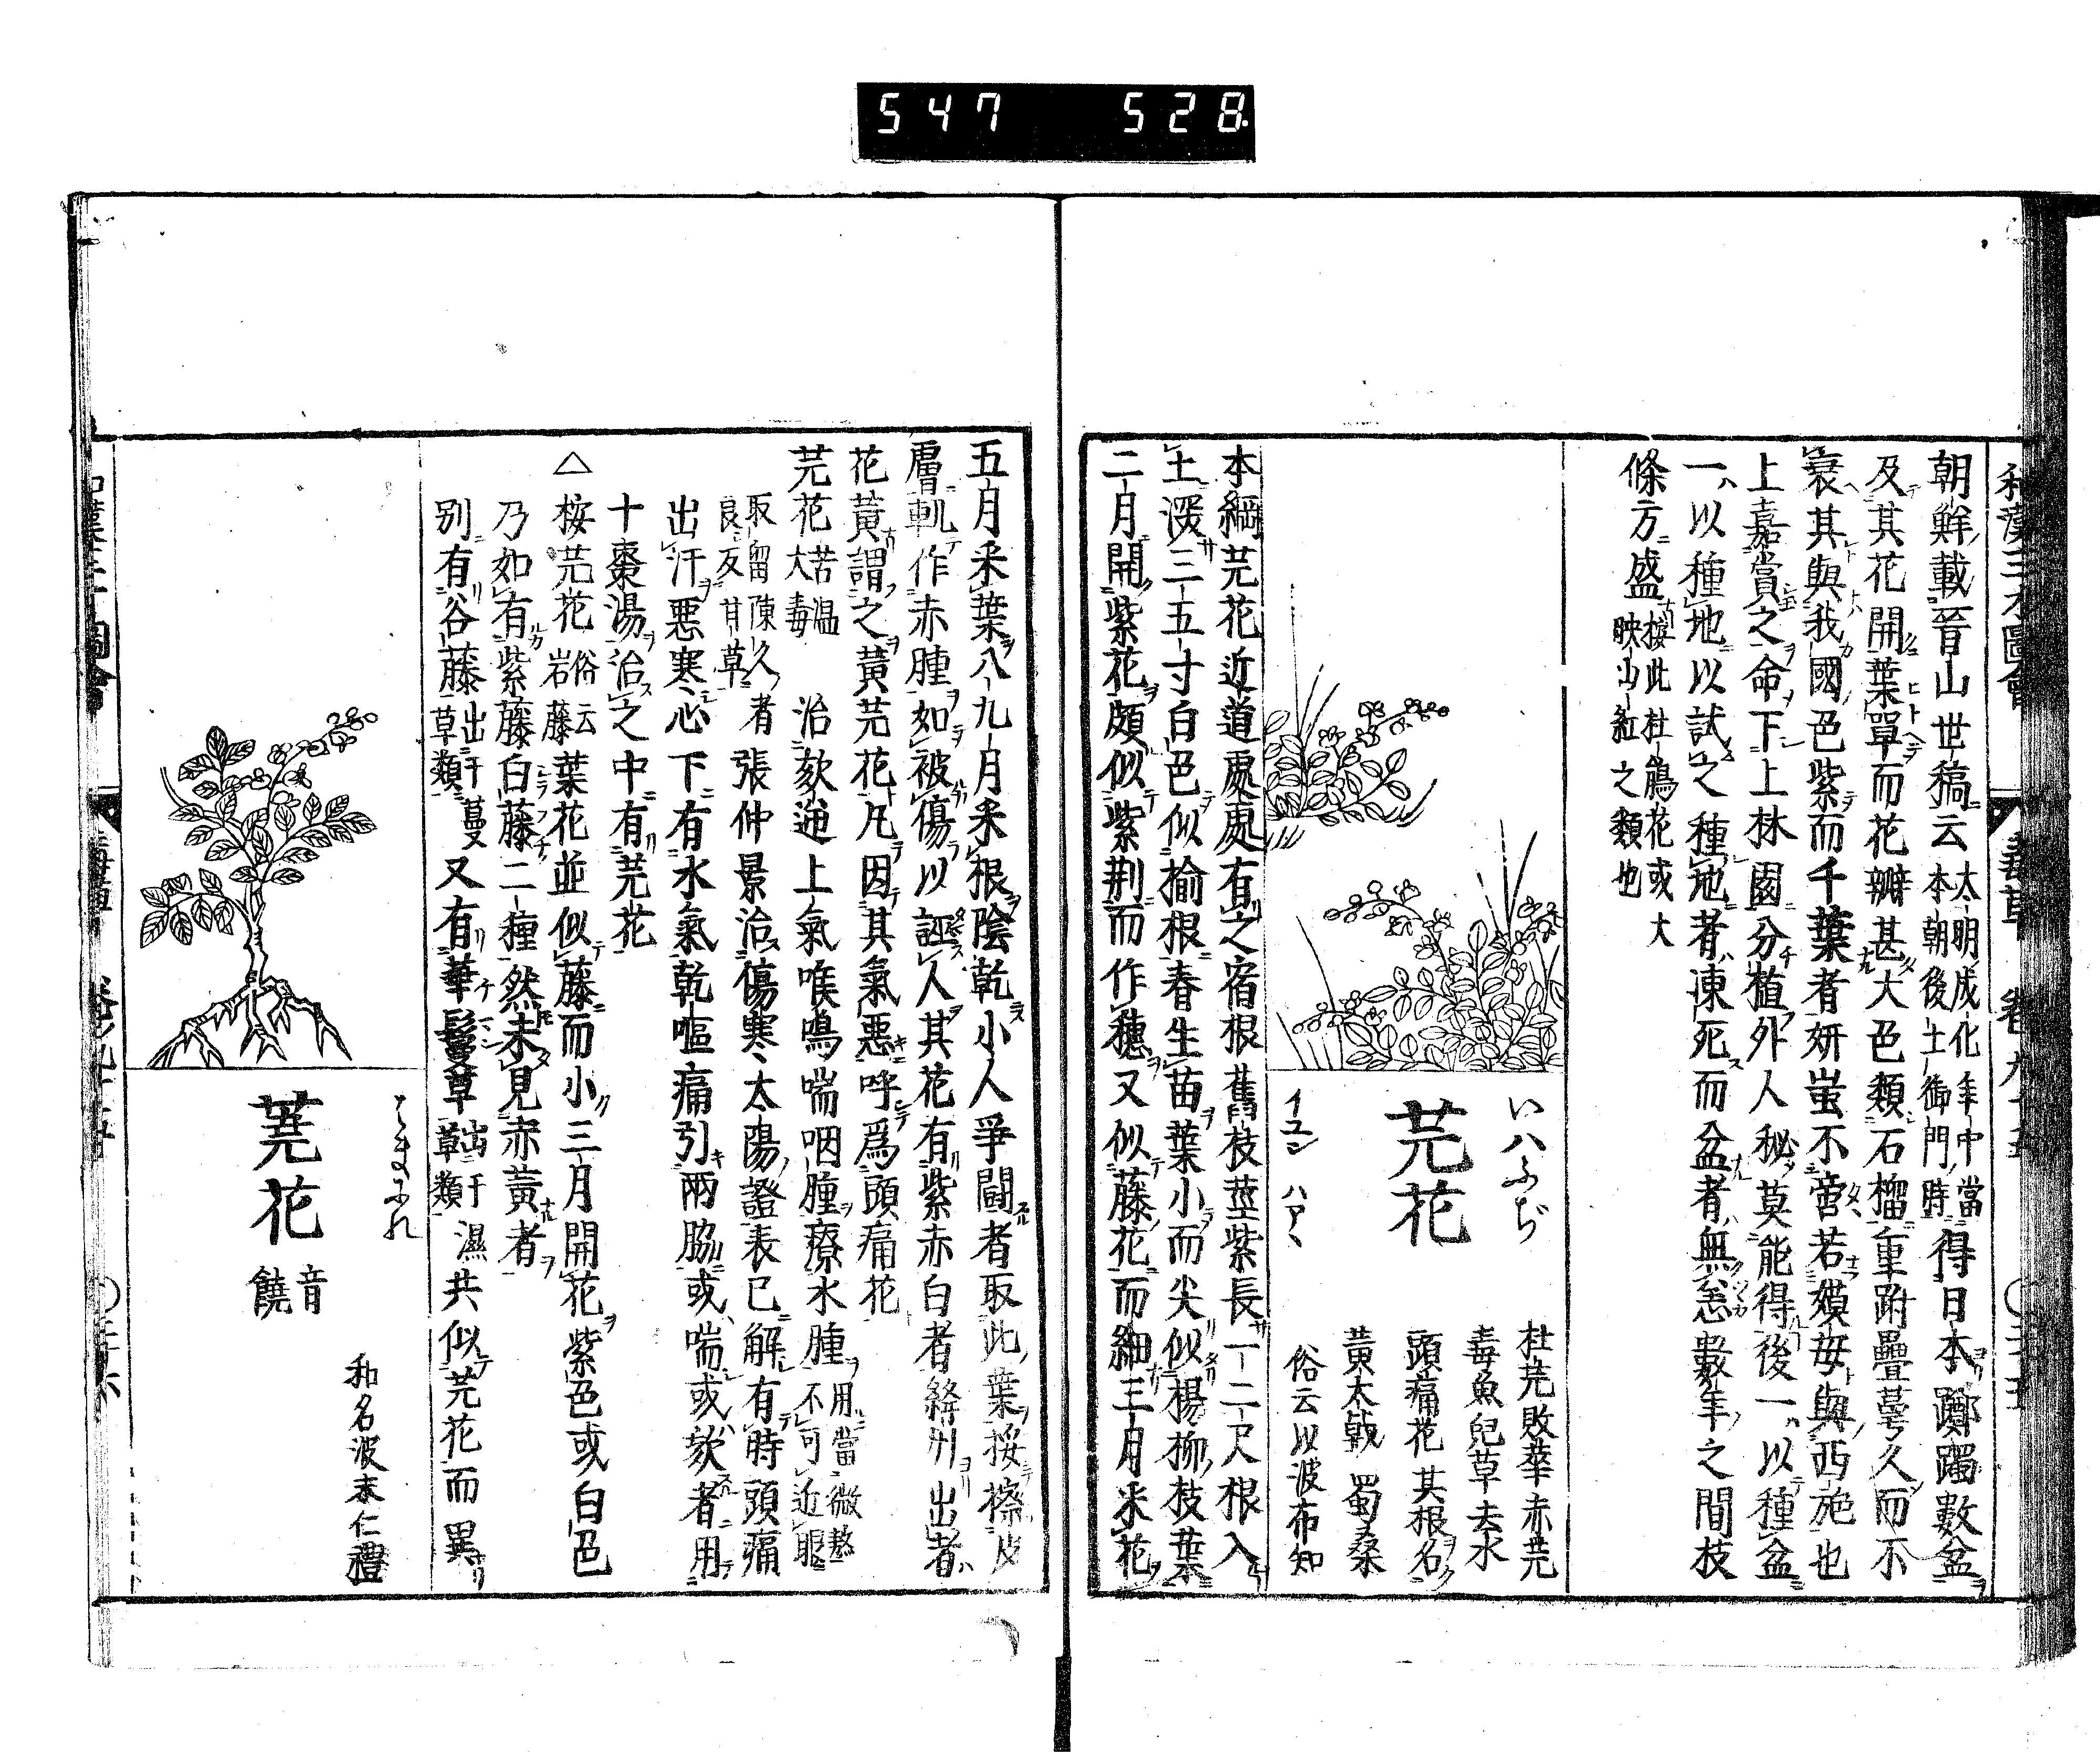 547 528
和漢三才圖會 毒草 卷九十五
朝鮮載晉山世稿云太明成化年中當本朝後土御門時得日本躑躅數盆
及其花開葉單而花瓣甚大色類石榴重跗疊萼久而不
衰其與我國色紫而千葉者妍蚩不啻若嫫母與西施也
上嘉賞之命下上林園分植外人秘莫能得後一以種盆
一以種地以試之種地者凍死而盆者無恙數年之間枝
條方盛按此杜鵑花或大映山紅之類也
芫花
いハふぢ
イユン ハアヽ
杜芫敗華赤芫
毒魚兒草去水
頭痛花其根名
黃大戟 蜀桑
俗云以波布知
本綱芫花近道處處有之宿根舊枝莖紫長一二尺根入
土深三五寸白色似榆根春生苗葉小而尖似楊柳枝葉
二月開紫花頗似紫荆而作穗又似藤花而細三月采花
五月采葉八九月采根陰乾小人爭鬪者取此葉挼擦皮
膚輒作赤腫如被傷以誣人其花有紫赤白者絳州出者
花黃謂之黃芫花凡因其氣惡呼爲頭痛花
芫花苦温大毒 治欬逆上氣喉鳴喘咽腫療水腫用當微熬不可近眼
取畱陳久者良反甘草 張仲景治傷寒太陽證表已解有時頭痛
出汗惡寒心下有水氣乾嘔痛引兩脇或喘或欬者用
十棗湯治之中有芫花
△按芫花俗云岩藤葉花並似藤而小三月開花紫色或白色
乃如有紫藤白藤二種然未見赤黃者
別有谷藤出于蔓草類又有華鬘草出于濕草類共似芫花而異
蕘花 音饒
はまにれ
和名波末仁禮